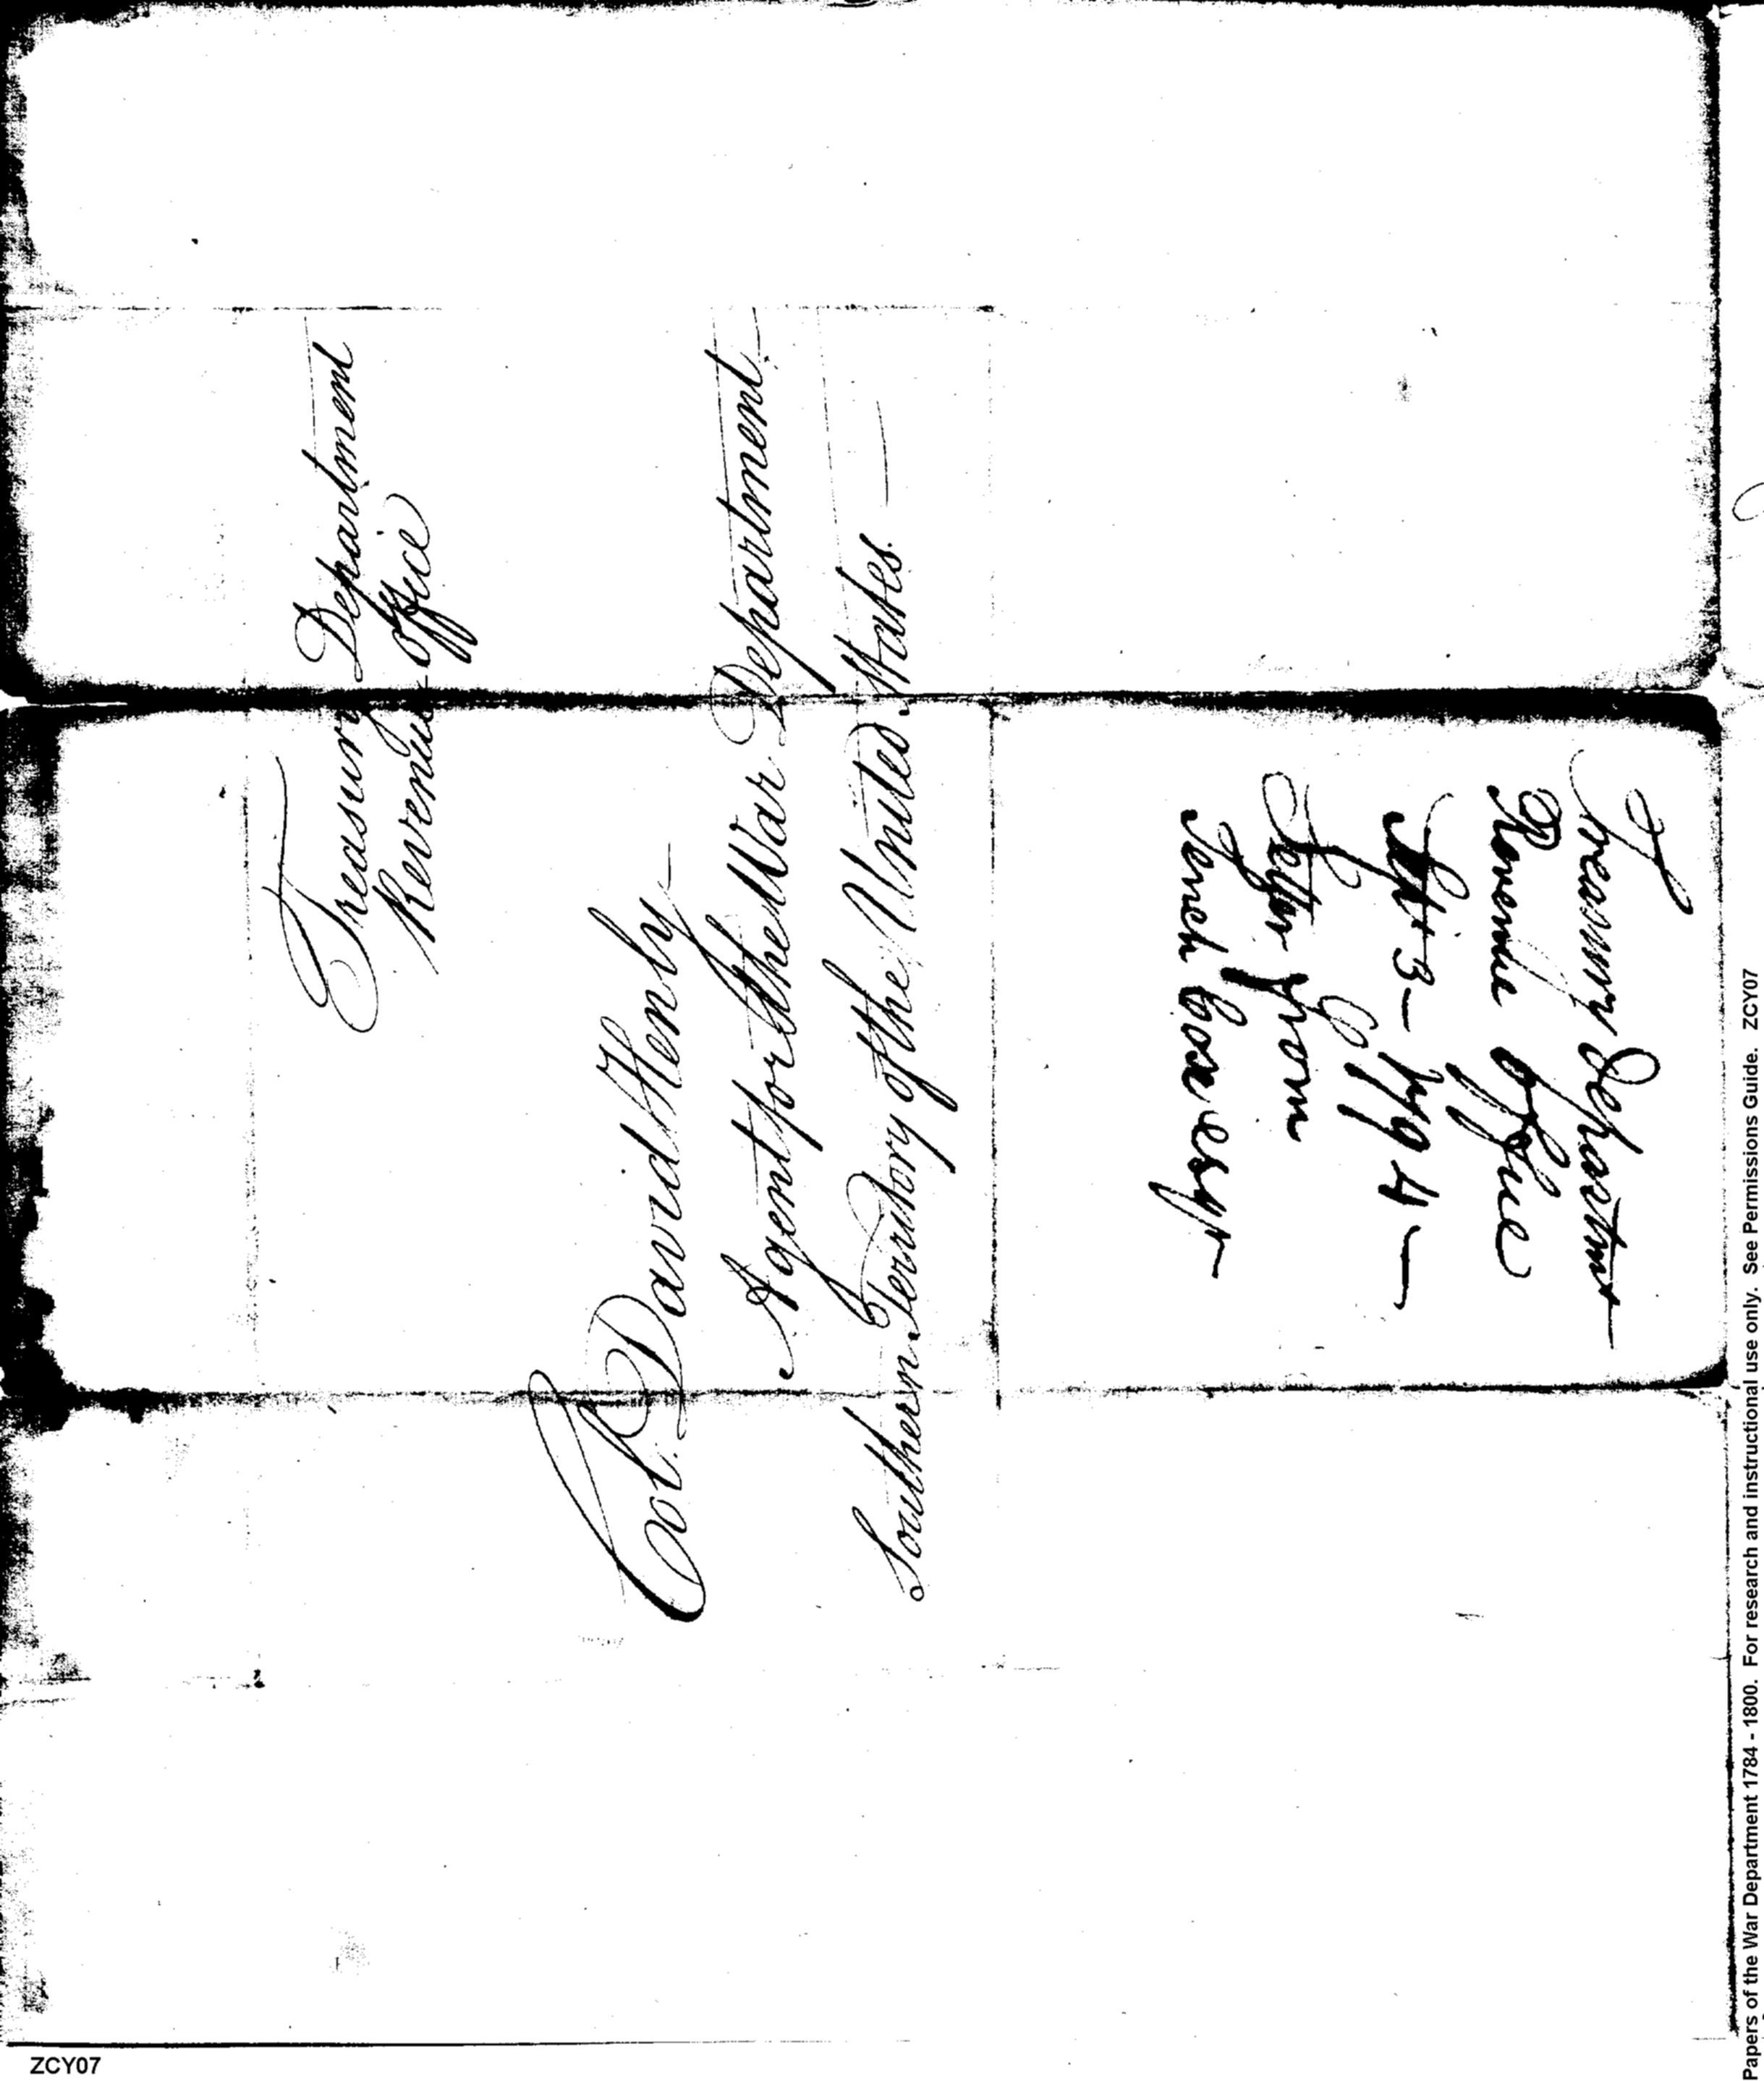 Treasury Department
Revenue office
Col. David Henly
Agent for the War Department
Southern Territory of the United States
Treasury Departmt
Revenue Office
Sept 3 - 1794 -
Letter from
Tench Coxe esqr
Papers of the War Department 1784 - 1800. For research and instructional use only. See Permissions Guide. ZCY07
ZCY07